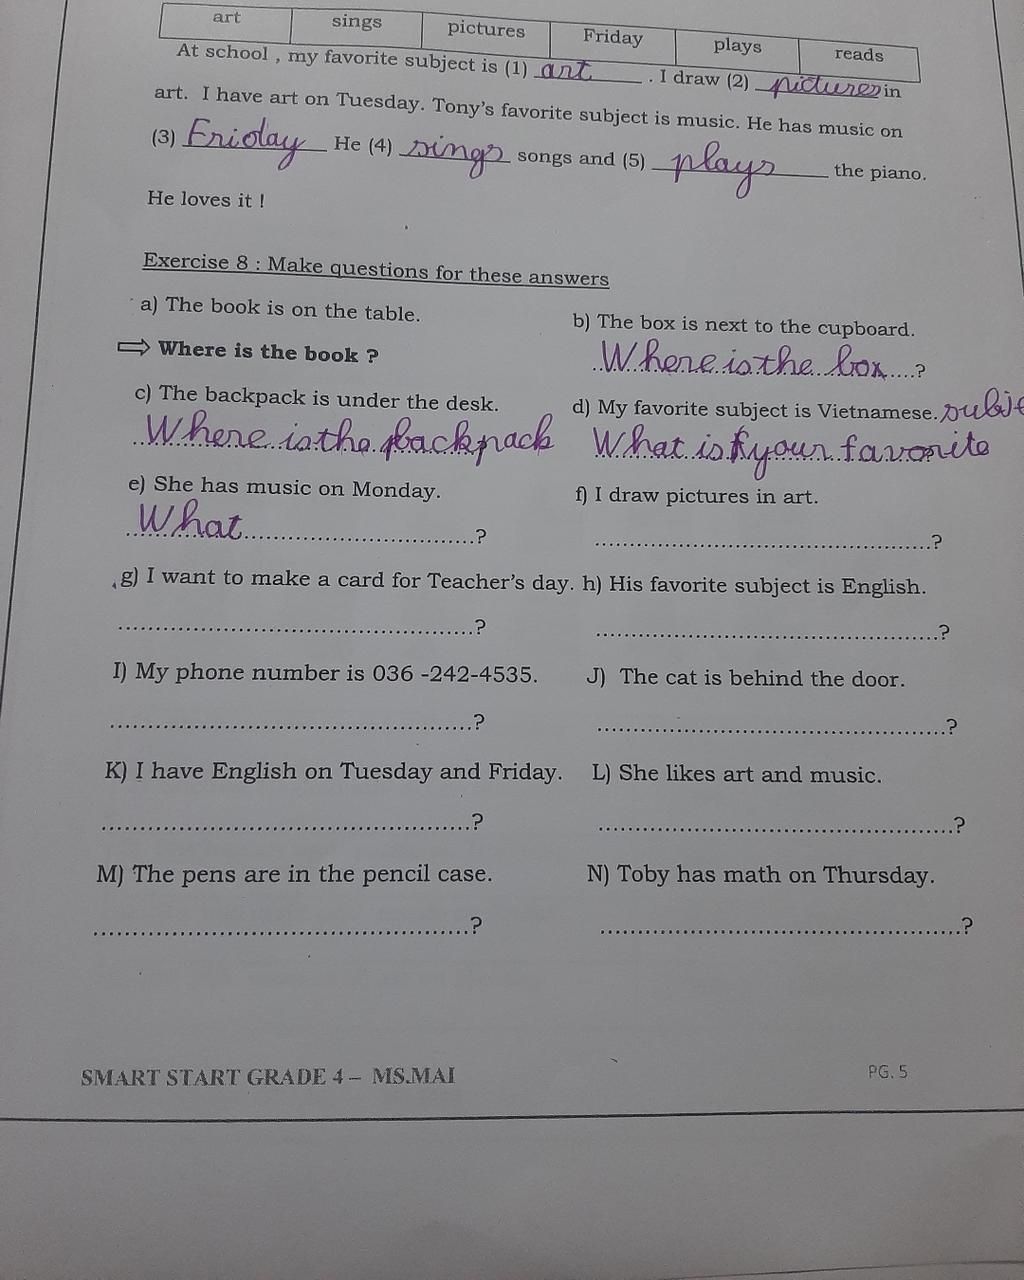 art sings pictures Friday plays reads
At school , my favorite subject is (1) art . I draw (2) pictures in
art. I have art on Tuesday. Tony's favorite subject is music. He has music on
(3) Friday He (4) sings songs and (5) plays the piano.
He loves it !
Exercise 8 : Make questions for these answers
a) The book is on the table. b) The box is next to the cupboard.
⇨ Where is the book ? Where is the box ....?
c) The backpack is under the desk. d) My favorite subject is Vietnamese.
Where is the backpack What is your favorite
e) She has music on Monday. f) I draw pictures in art.
What.................................? ................................................?
g) I want to make a card for Teacher's day. h) His favorite subject is English.
................................................? ................................................?
I) My phone number is 036 -242-4535. J) The cat is behind the door.
................................................? ................................................?
K) I have English on Tuesday and Friday. L) She likes art and music.
................................................? ................................................?
M) The pens are in the pencil case. N) Toby has math on Thursday.
................................................? ................................................?
SMART START GRADE 4 – MS.MAI PG. 5